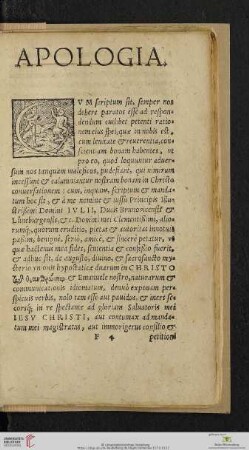 APOLOGIA.
CVM scriptum sit, semper nos
debere paratos esse ad respon-
dendum cuilibet petenti ratio-
nem eius spei, quæ in nobis est,
cum lenitate & reuerentia, con-
scientiam bonam habentes, ut
pro eo, quod loquuntur aduer-
sum nos tanquam malificos, pudefiant, qui nimirum
incessunt & calumniantur nostram bonam in Christo
conuersationem: cum, inquam, scriptum & manda-
tum hoc sit, & à me nominatim & iussu Principis Illu-
strissimi Domini IVLII, Ducis Brunouicensis &
Lüneburgensis, &c. Domini mei Clementissimi, alio-
rumque, quorum eruditio, pietas & autoritas
passim, benignè, seriò, amicè, & sincerè petatur, ut
quæ hactenus mea fides, sententia & confessio fuerit,
& adhuc sit, de augusto, diuino, & sacrosancto my-
sterio unionis hypostaticæ duarum in CHRISTO
& Emanuele nostro, naturarum &
communicationis idiomatum, denuò exponam per-
spicuis verbis, nolo tam esse aut pauidus, et iners se-
cordisque, in re spectante ad gloriam Saluatoris mei
IESV CHRISTI, aut contumax ad manda-
tum mei magistratus, aut immorigerus consilio &
F 4 petitioni